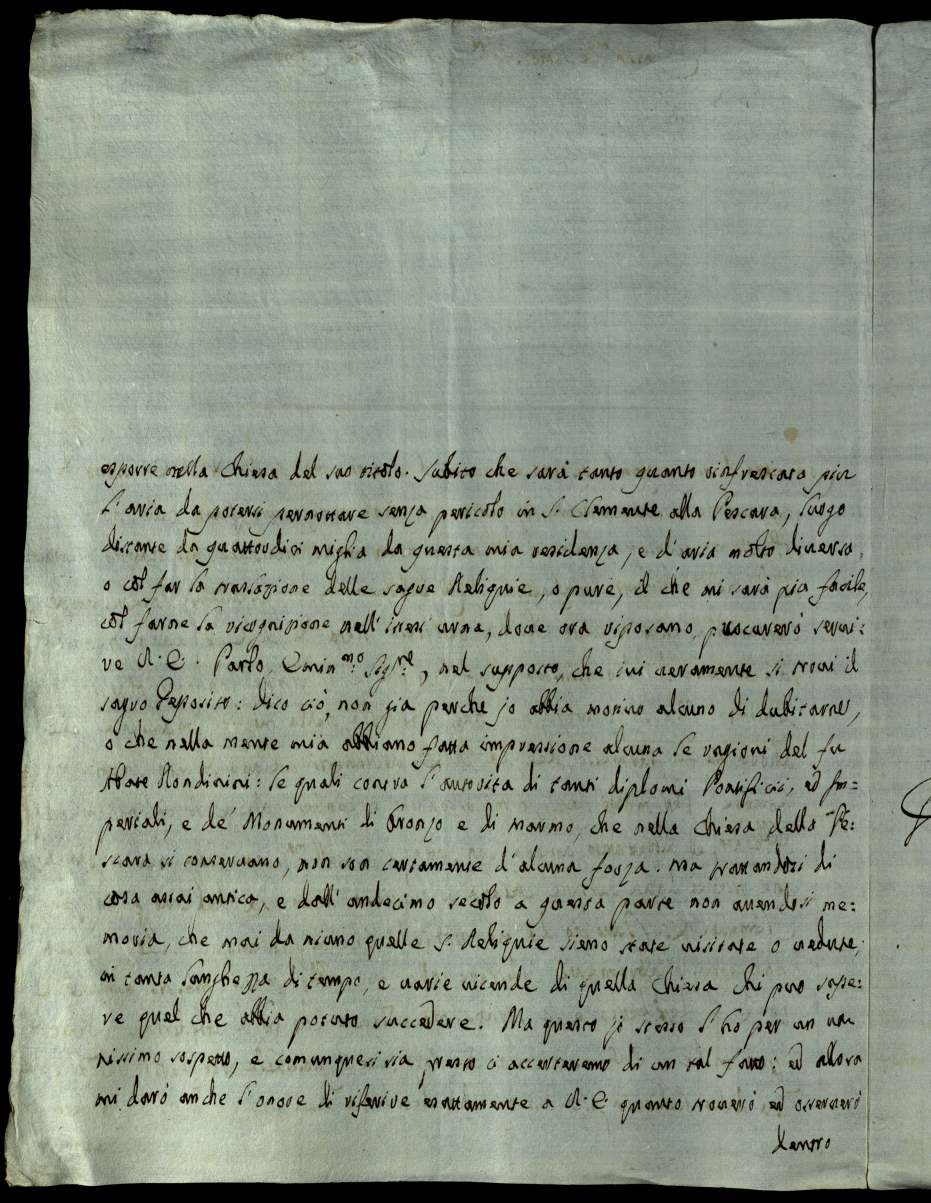 esporre nella Chiesa del suo titolo. Subito che sarà tanto quanto rinfrescata più
l'aria da potersi pernottare senza pericolo in S. Clemente alla Pescara, luogo
distante da quattordici miglia da questa mia residenza, e d'aria molto diversa,
o col far la translazione delle sagre Reliquie, o pure, il che mi sarà più facile,
col farne la ricognizione nell'istess' urna, dove ora riposano, procurerò servi:
re V. E. Parlo, Emin.mo Sig.re, nel supposto, che ivi veramente si trovi il
sagro Deposito: dico ciò, non già perche jo abbia motivo alcuno di dubitarne,
o che nella mente mia abbiano fatta impressione alcuna le ragioni del fu
Abate Rondinini: le quali contra l'autorità di tanti diplomi Pontificii, ed Im=
periali, e de' Monumenti di bronzo e di marmo, che nella Chiesa della Pe:
scara si conservano, non son certamente d'alcuna forza. Ma trattandosi di
cosa assai antica, e dall'undecimo secolo a questa parte non avendosi me:
moria, che mai da niuno quelle S. Reliquie sieno state visitate o vedute;
in tanta lunghezza di tempo, e varie vicende di quella Chiesa chi può sape:
re quel che abbia potuto succedere. Ma questo jo stesso l'ho per un va
nissimo sospetto, e comunquesisia, presto ci accerteremo di un tal fatto: ed allora
mi darò anche l'onore di riferire esattamente a V. E. quanto troverò ed osserverò
dentro